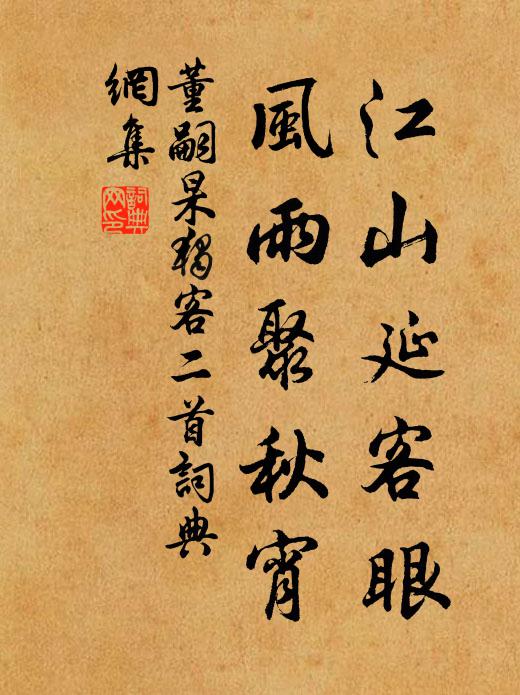 江山延客眼
風雨聚秋宵
董嗣杲獨客二首詞典
網集
詞典網印